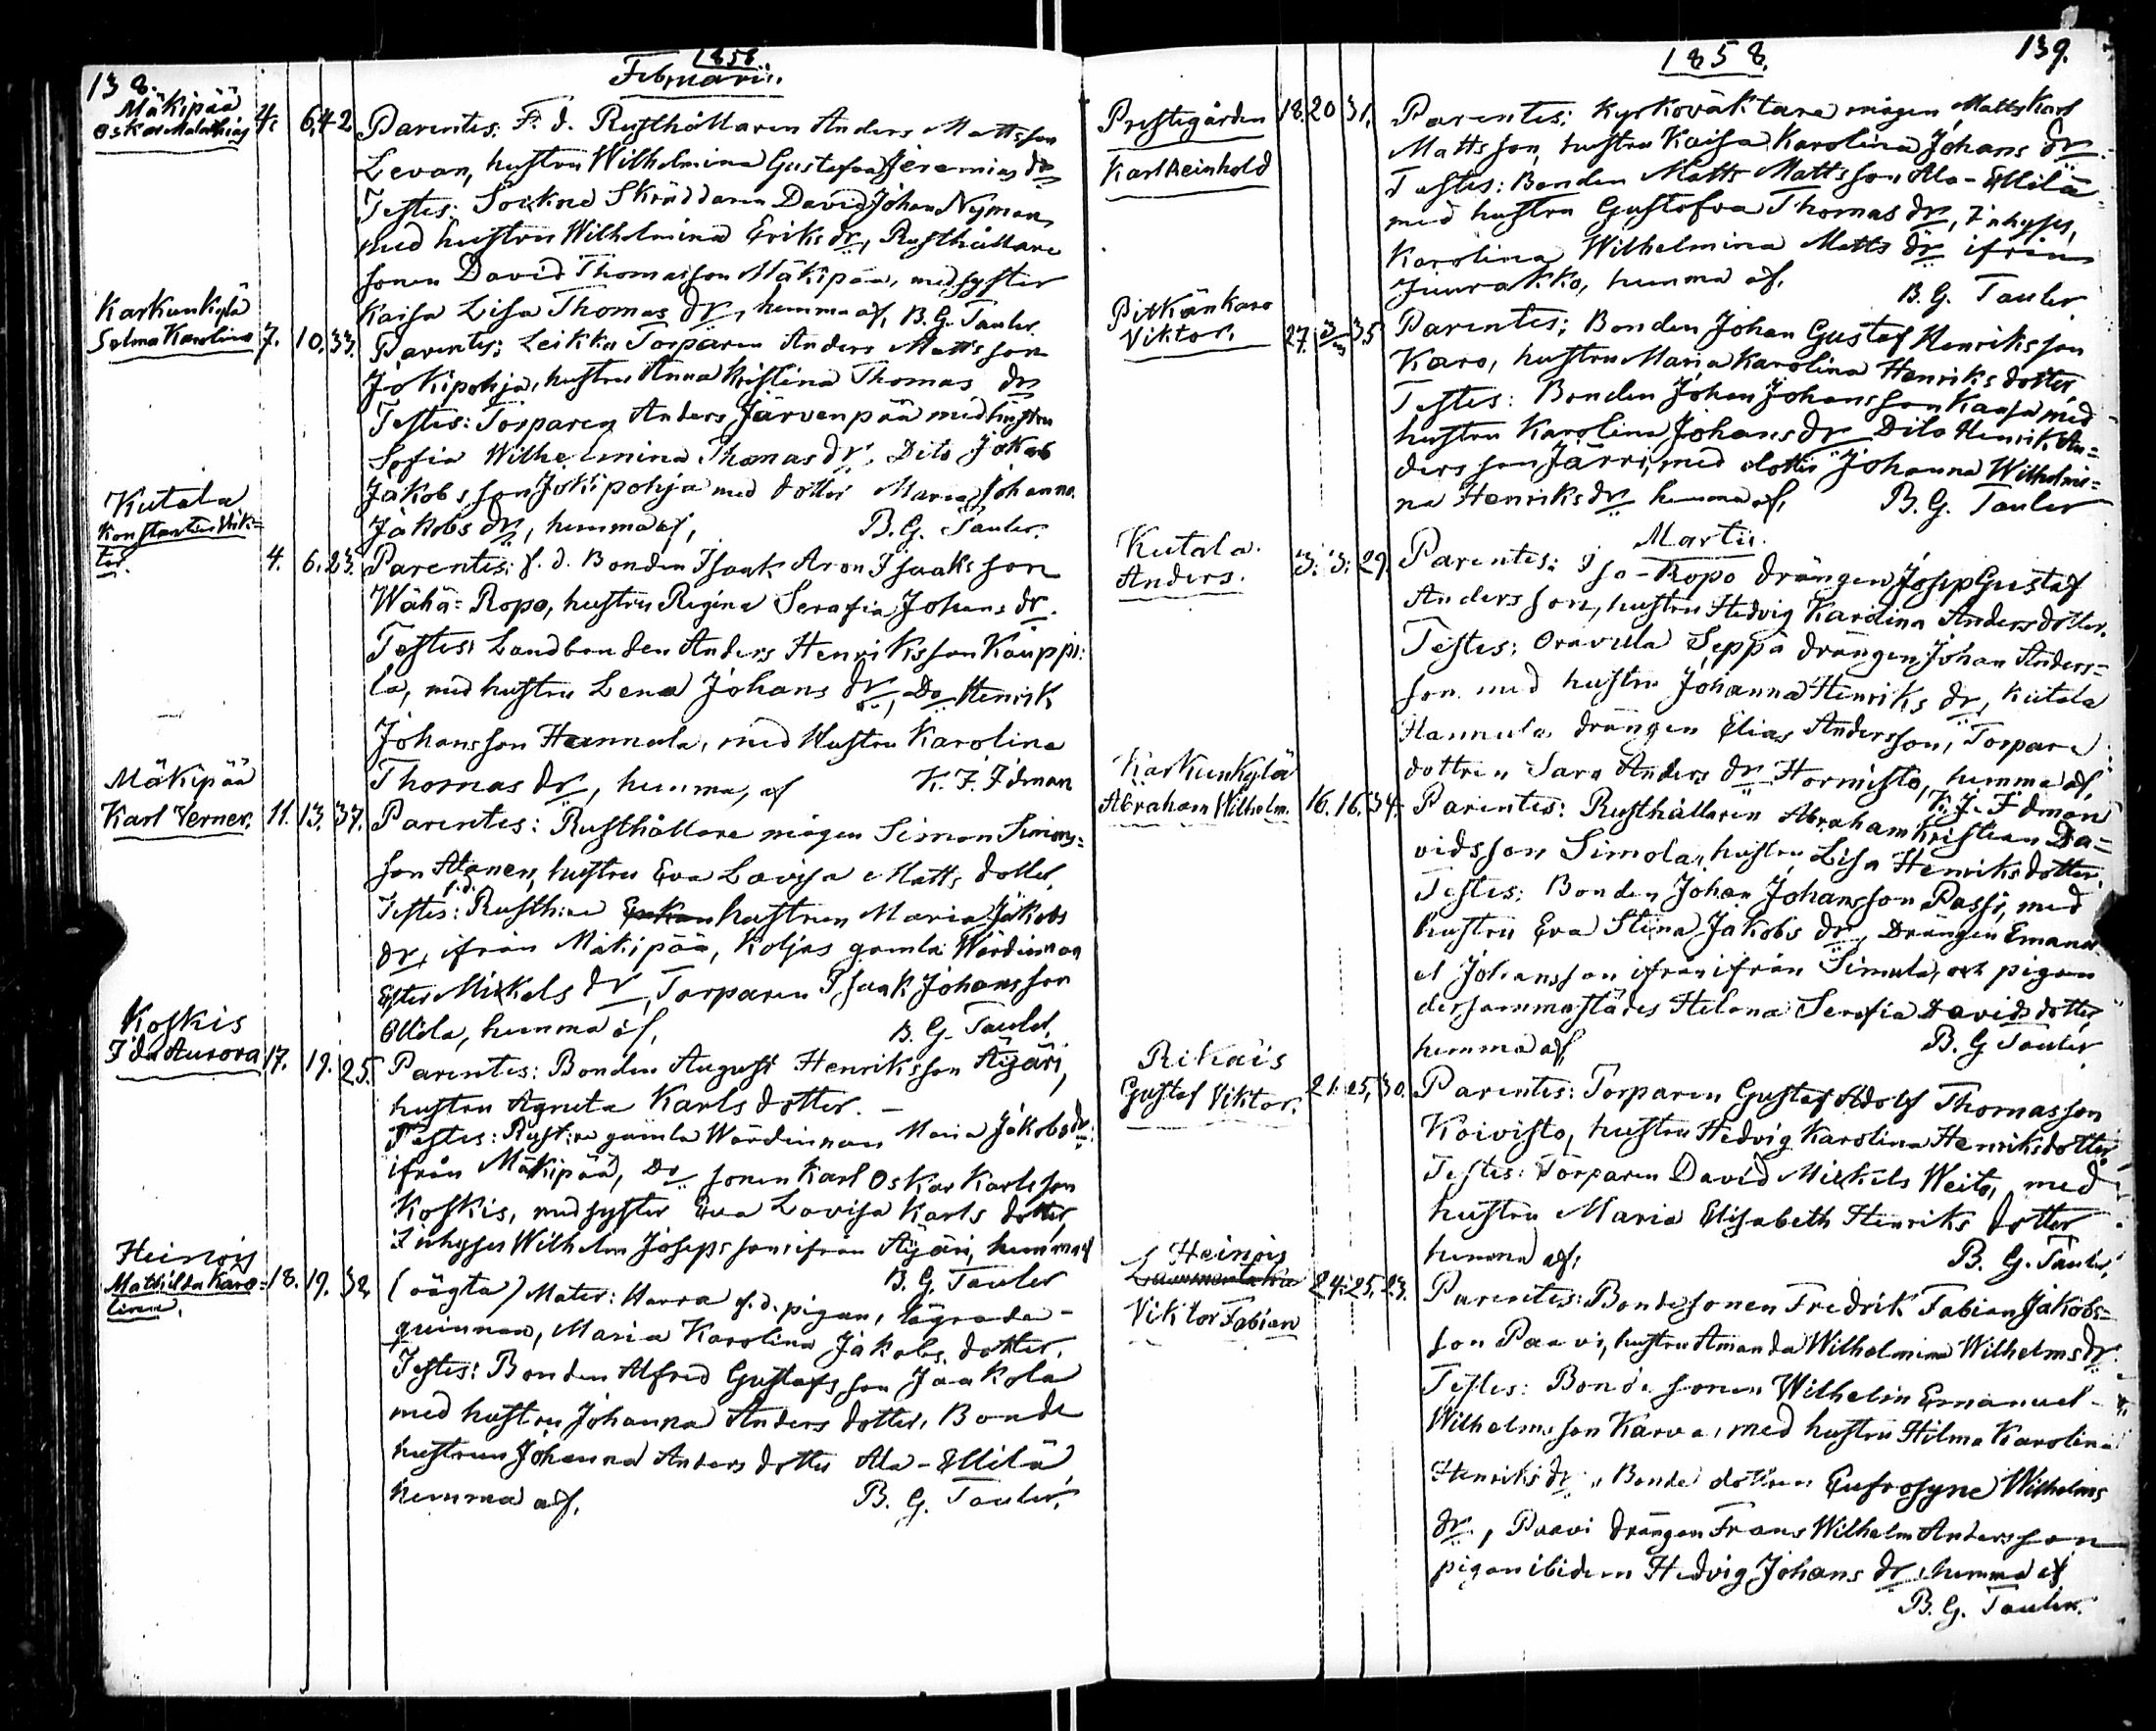 138.
1858.
Februarii.
Mäkipää
Oskar Malathias 4. 6. 42.
Parentes: F. d. Rusthållaren Anders Mattsson
Levan, hustru Wilhelmina Gustafva Jeremias dr
Testes: Sockne Skräddaren David Johan Nyman,
med hustru Wilhelmina Eriks dr, Rusthållare
sonen David Thomasson Mäkipää, med syster
Kaisa Lisa Thomas dr, hemma af, B. G. Tauler.
Karkunkylä
Selma Karolina 7. 10. 33.
Parentes: Leikku Torparen Anders Mattsson
Jokipohja, hustru Anna Kristina Thomas dr
Testes: Torparen Anders Järvenpää med hustru
Sofia Wilhelmina Thomas dr. Dito Jakob
Jakobsson Jokipohja med dotter Maria Johanna
Jakobs dr, hemma af, B. G. Tauler.
Kutala
Konstantin Vik=
tor. 4. 6. 23.
Parentes: f. d. Bonden Isaak Aron Isaaksson
Wähä=Ropo, hustru Regina Serafia Johans dr.
Testes: Landbonden Anders Henriksson Kauppi=
la, med hustru Lena Johans dr, Do Henrik
Johansson Hannula, med Hustru Karolina
Thomas dr, hemma, af K. F. Idman
Mäkipää
Karl Verner. 11. 13. 37.
Parentes: Rusthållare mågen Simon Simons=
son Alanen, hustru Eva Lovisa Matts dotter,
Testes: f.d. Rusth:re hustrun Maria Jakobs
dr, ifrån Mäkipää, Koljas gamla Wärdinnan
Ester Mickels dr, Torparen Isaak Johansson
Ollila, hemma af, B. G. Tauler.
Koskis
Ida Aurora 17. 19. 25.
Parentes: Bonden August Henriksson Äijäri,
hustru Agneta Karlsdotter. –
Testes: Rust:re gamla Wärdinnan Maria Jakobs dr
ifrån Mäkipää, Do sonen Karl Oskar Karlsson
Koskis, med syster Eva Lovisa Karls dotter,
Inhyses Wilhelm Josepsson ifrån Äijäri, hemma af
B. G. Tauler
Heinois
Mathilda Karo=
lina. 18. 19. 32.
(oägta) Mater: Harra f. d. pigan, lägrade-
quinnan, Maria Karolina Jakobs dotter.
Testes: Bonden Alfred Gustafsson Jaakola
med hustru Johanna Anders dotter, Bonde
hustrun Johanna Anders dotter Ala-Ellilä,
hemma af, B. G. Tauler.
1858.
139.
Prestegården 18. 20. 31.
Karl Reinhold
Parentes: Kyrkoväktare mågen Matts Karl
Mattsson, hustru Kaisa Karolina Johans dr
Testes: Bonden Matts Mattsson Ala-Ellilä
med hustru Gustafva Thomas dr, Inhyses,
Karolina Wilhelmina Matts dr ifrån
Juurakko, hemma af. B. G. Tauler
Pitkänkaro
Viktor. 27. 3/3 35
Parentes: Bonden Johan Gustaf Henriksson
Karo, hustru Maria Karolina Henriks dotter,
Testes: Bonden Johan Johansson Kaasa med
hustru Karolina Johans dr Dito Henrik An=
dersson Järvi, med dotter Johanna Wilhelmi=
na Henriks dr hemma af, B. G. Tauler
Martii.
Kutala.
Anders. 3. 3. 29.
Parentes: Iso-Ropo drängen Josep Gustaf
Andersson, hustru Hedvig Karolina Andersdotter.
Testes: Oravula Seppä drängen Johan Anders=
son med hustru Johanna Henriks dr, Kutala
Hannula drängen Elias Andersson, Torpare
dottren Sara Anders dr Hormisto, hemma af.
K. F. Idman
Karkunkylä
Abraham Wilhelm. 16. 16. 34.
Parentes: Rusthållaren Abraham Kristian Da=
vidsson Simola, hustru Lisa Henriksdotter.
Testes: Bonden Johan Johansson Passi, med
hustru Eva Stina Jakobs dr, Drängen Emanu=
el Johansson ifrån ifrån Simula, och pigan
dersammastädes Helena Serafia Davids dotter,
hemma af, B. G Tauler
Rikais
Gustaf Viktor. 21. 25. 30.
Parentes: Torparen Gustaf Adolf Thomasson
Koivisto, hustru Hedvig Karolina Henriksdotter,
Testes: Torparen David Mickels Weito, med
hustru Maria Elisabeth Henriks dotter
hemma af. B. G. Tauler.
Heinois
Viktor Fabian 24. 25. 23.
Parentes: Bondesonen Fredrik Fabian Jakobs=
son Paavi, hustru Amanda Wilhelmina Wilhelms dr.
Testes: Bonde sonen Wilhelm Emanuel-
Wilhelmsson Karva, med hustru Hilma Karolina
Henriks dr, Bonde dottren Eufrosyne Wilhelms
dr., Paavi drängen Frans Wilhelm Andersson
pigan ibidem Hedvig Johans dr, hemma af
B. G. Tauler.